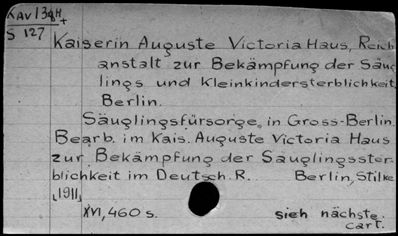 KAv 13gH+
S 127
Kaiserin Auguste Victoria Haus, Reich
anstalt zur Bekämpfung der Säug
lings und Kleinkindersterblichkeit,
Berlin.
Säuglingsfürsorge in Gross-Berlin.
Bearb. im Kais. Auguste Victoria Haus
zur Bekämpfung der Säuglingsster-
blichkeit im Deutsch. R. Berlin, Stilke
[1911]
XVI, 460 s. sieh nächste
cart.